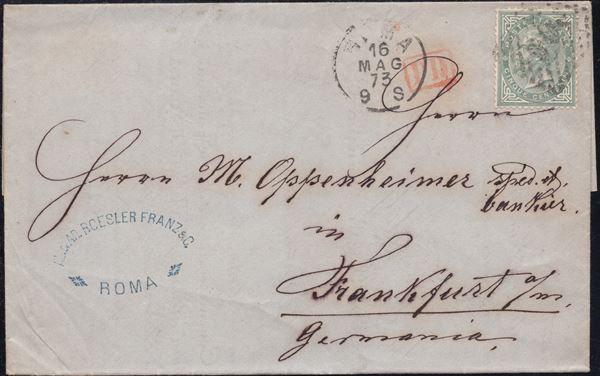 ROMA
16
MAG
73
9 S
P.D.
Herrn
Herrn M. Oppenheimer
bankier.
in
Frankfurt a/m.
Germania
ROESLER FRANZ & C.
ROMA